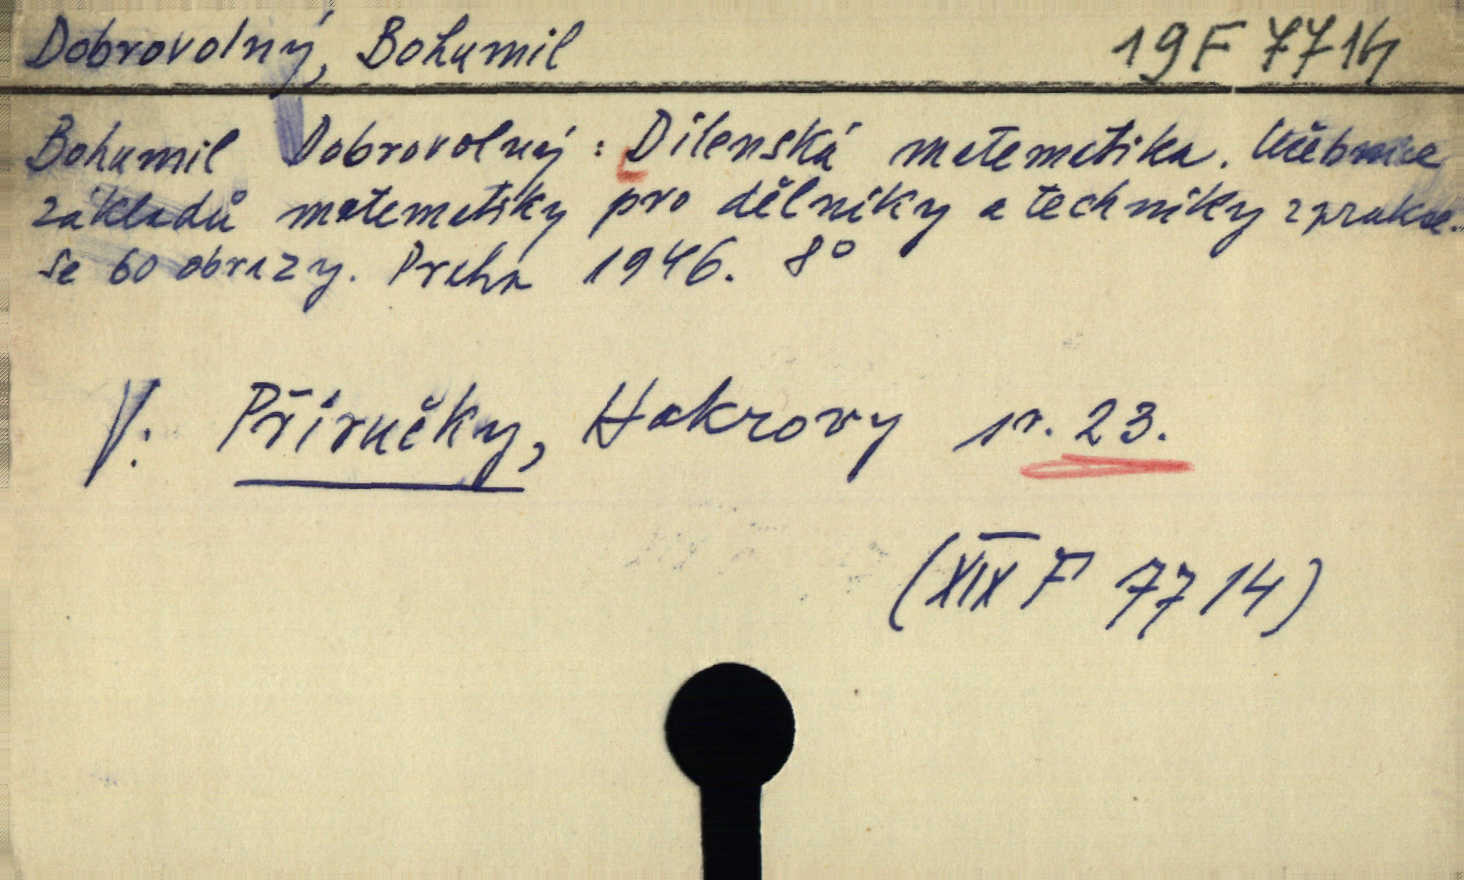 Dobrovolný, Bohumil 19 F 7714
Bohumil Dobrovolný: Dílenská matematika. Učebnice
základů matematiky pro dělníky a techniky z prakse.
Se 60 obrazy. Praha 1946. 8°
V. Příručky, Hokrovy sv. 23.
(XIX F 7714)